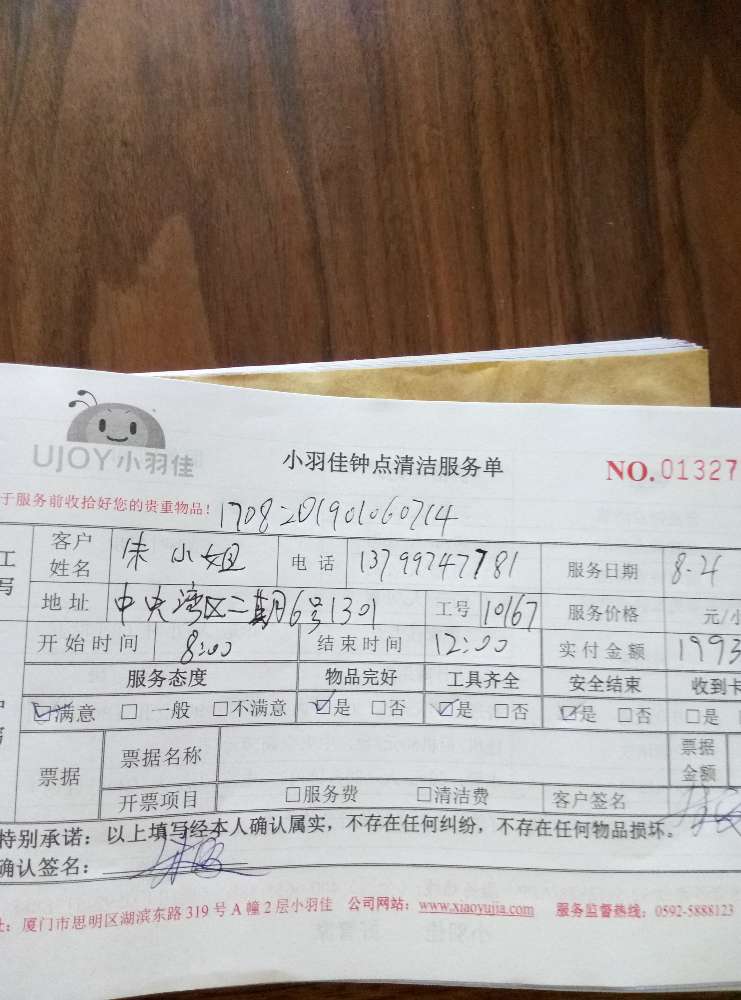 UJOY小羽佳
小羽佳钟点清洁服务单 NO.01327
于服务前收拾好您的贵重物品! 1708201901060714
工 客户姓名 朱小姐 电话 13799747781 服务日期
写 地址 中央湾区二期6号1301 工号 10167 服务价格 元/小
开始时间 8:00 结束时间 12:00 实付金额 1993
服务态度 物品完好 工具齐全 安全结束 收到卡
☑满意 □一般 □不满意 ☑是 □否 ☑是 □否 ☑是 □否 □是
票据 票据名称 票据金额
开票项目 □服务费 □清洁费 客户签名
特别承诺：以上填写经本人确认属实，不存在任何纠纷，不存在任何物品损坏。
确认签名：
址：厦门市思明区湖滨东路 319 号 A 幢 2 层小羽佳 公司网站：www.xiaoyujia.com 服务监督热线：0592-5888123